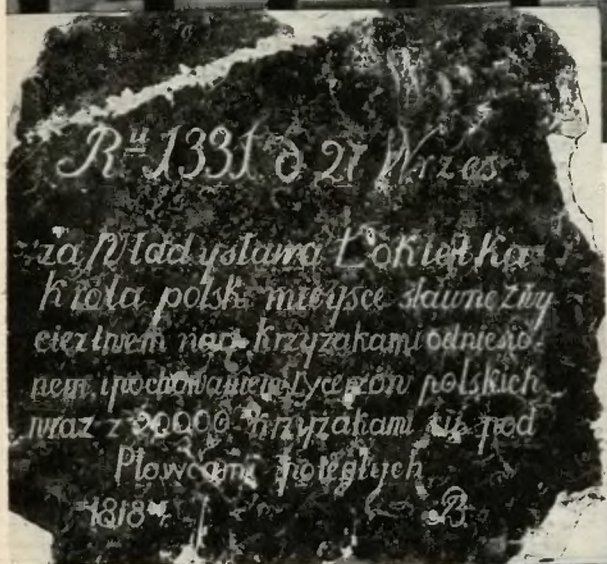 Ru 1331 d 27 Wrzes
za Władysława Łokietka
Króla polsk. mieysce sławne zwy
cięztwem nad Krzyżakami odniesio-
nem i pochowaniem rycerzów polskich
wraz z 20000 Krzyżakami tu pod
Płowcami poległych
1818 r. B.